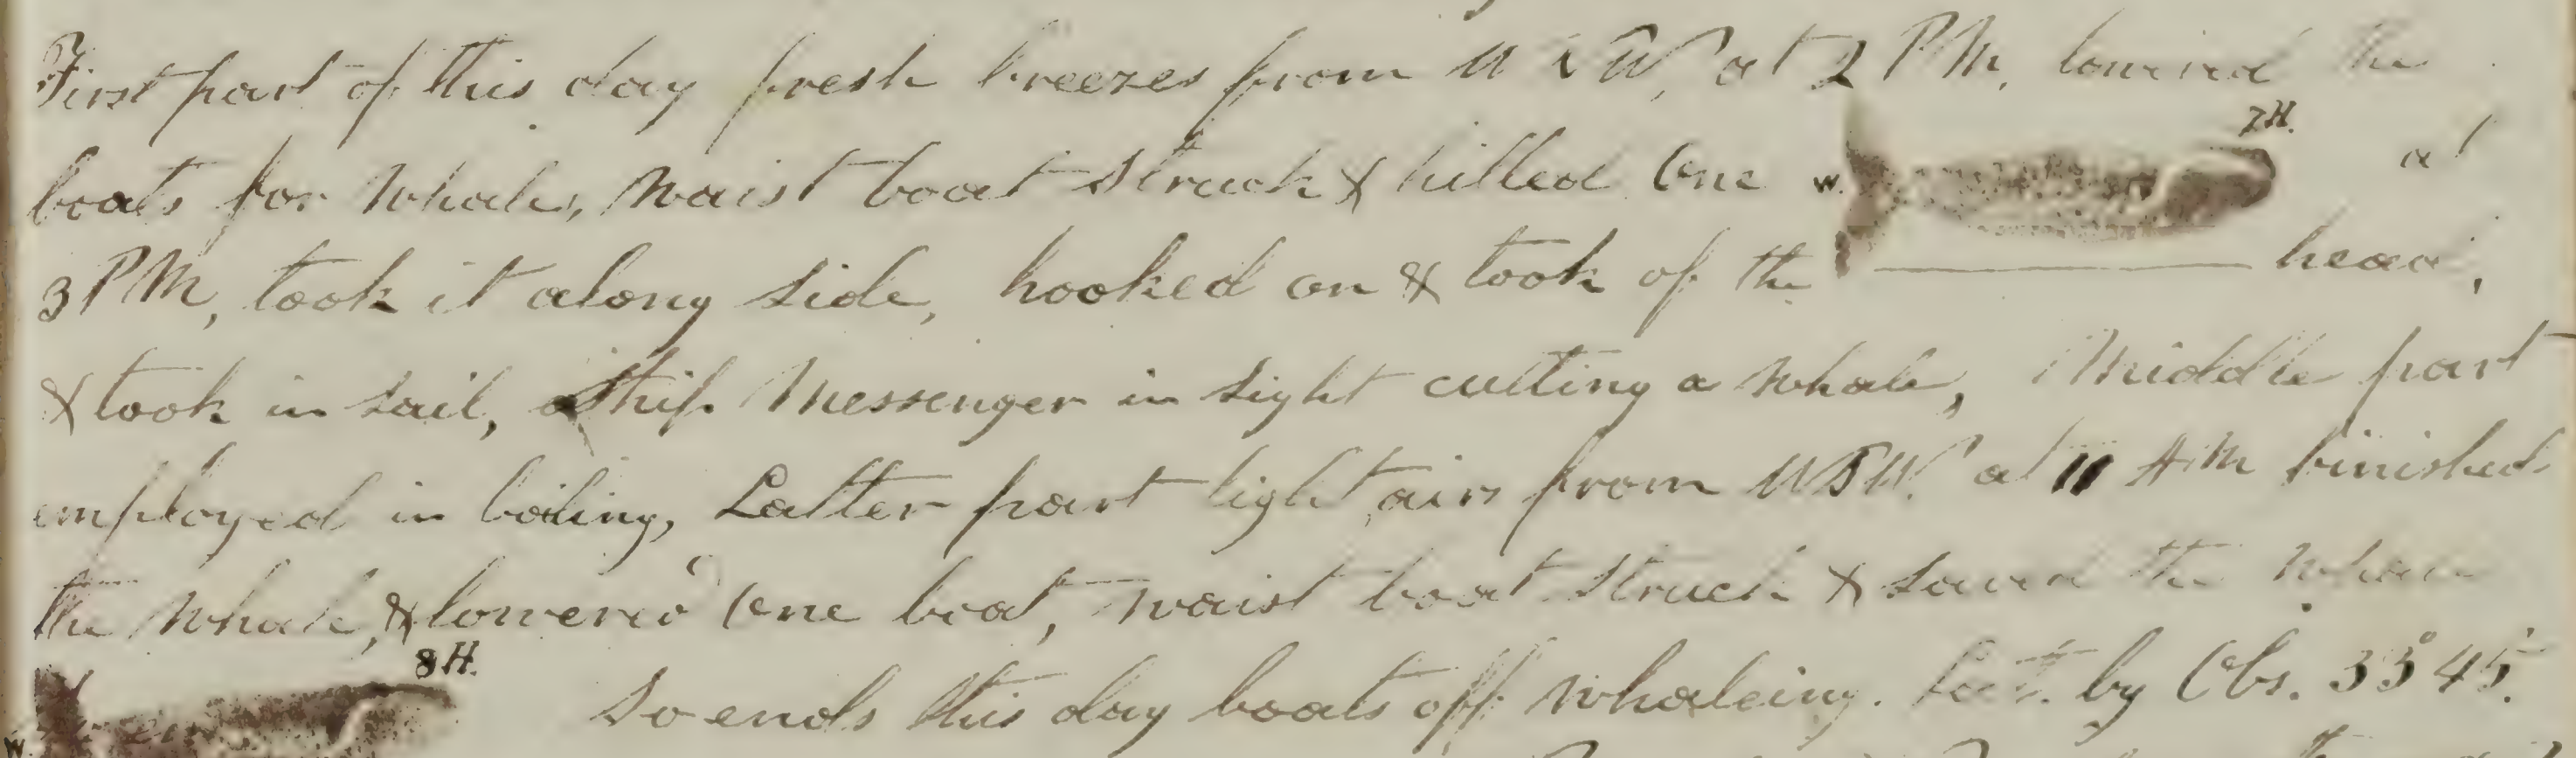 First part of this day fresh breezes from at 2 PM, lowered the
7H.
boats for Whales, waist boat struck & killed One w. at
3 PM, took it along side, hooked on & took of the head,
& took in sail, Ship Messenger in sight cutting a whale, Middle part
employed in boiling, Latter part light airs from at 11 AM finished
the whale, & lowered One boat, waist boat struck & saved the whale
8H.
w. So ends this day boats off whaleing. Lat. by Obs. 33° 45'